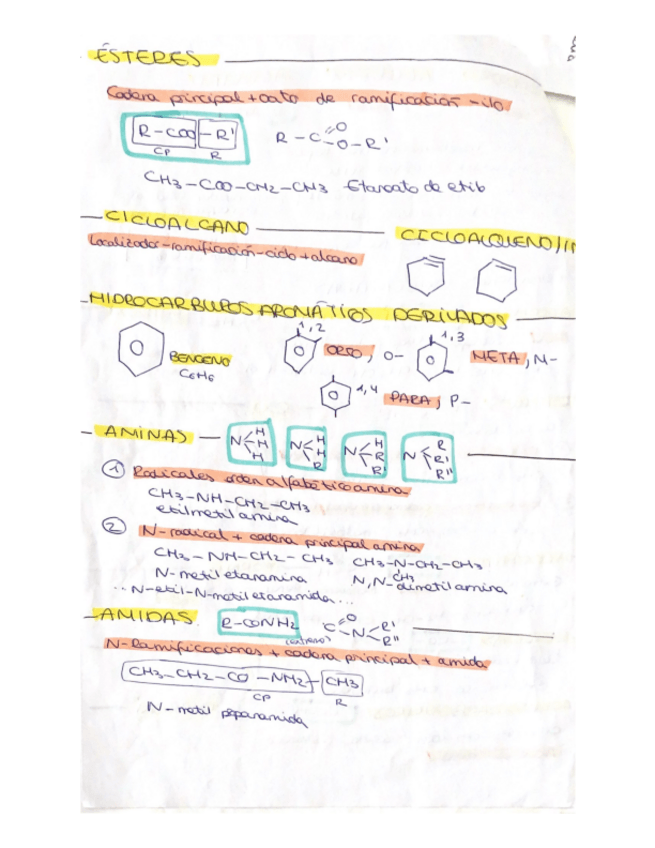 ÉSTERES
Cadena principal + oato de ramificación -ilo
R-COO-R'
CP R
R-C=O-O-R'
CH3-COO-CH2-CH3 Etanoato de etilo
CICLOALCANO
Localizador-ramificación-ciclo+alcano
CICLOALQUENO/IN
HIDROCARBUROS AROMÁTICOS DERIVADOS
BENCENO
C6H6
1,2
ORTO, O-
1,3
META, M-
1,4
PARA, P-
AMINAS
N H H H
N H H R
N H R R'
N R R' R''
1 Radicales orden alfabético amina
CH3-NH-CH2-CH3
etilmetilamina
2 N-radical + cadena principal amina
CH3-NH-CH2-CH3 CH3-N-CH2-CH3
CH3
N-metil etanamina N,N-dimetilamina
..N-etil-N-metil etanamida...
AMIDAS
R-CONH2
C=O-N R' R''
(extremo)
N-Ramificaciones + cadena principal + amida
CH3-CH2-CO-NH2-CH3
CP R
N-metil propanamida